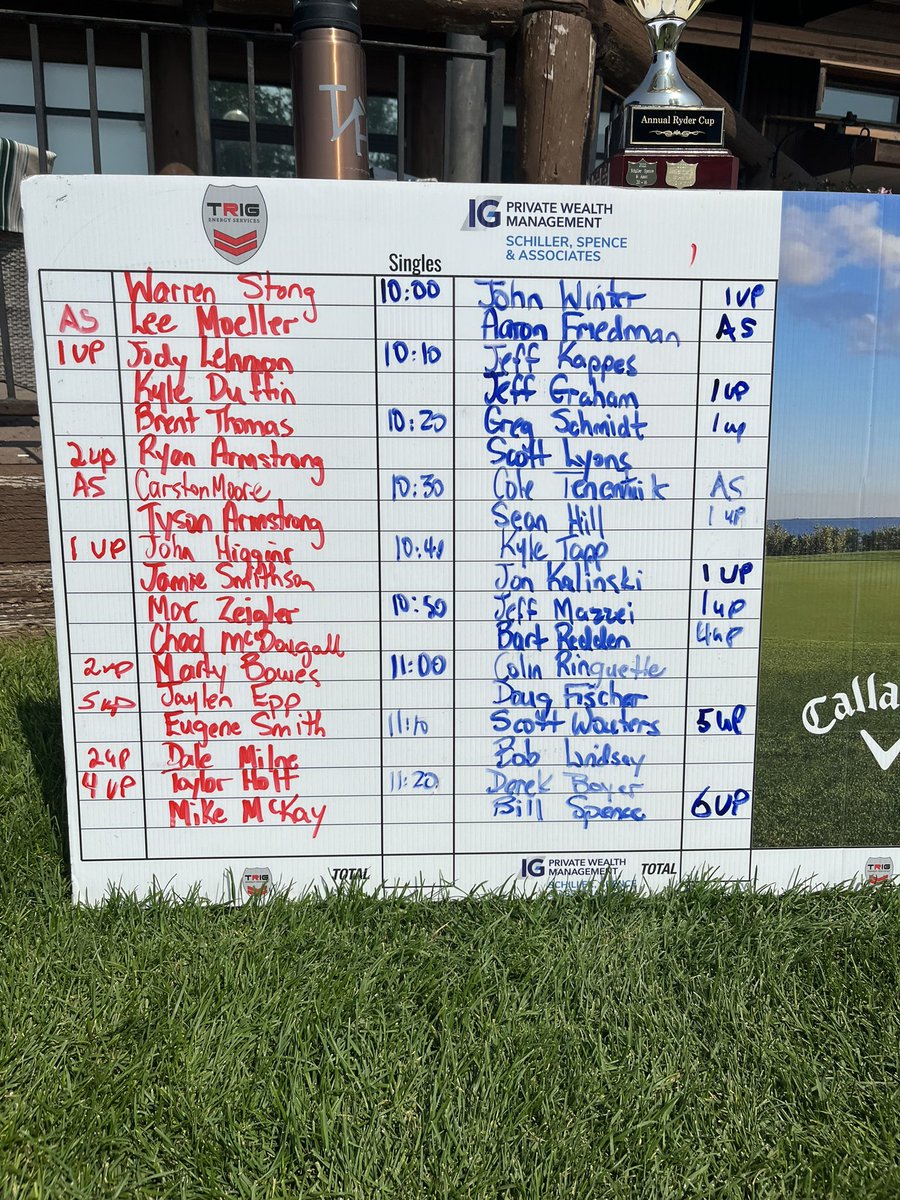 Annual Ryder Cup
TRIG
ENERGY SERVICES
IG PRIVATE WEALTH
MANAGEMENT
SCHILLER, SPENCE
& ASSOCIATES
Singles
Warren Stong 10:00 John Winter 1UP
AS Lee Moeller Aaron Friedman AS
1 UP Jody Lehmon 10:10 Jeff Kappes
Kyle Duffin Jeff Graham 1up
Brent Thomas 10:20 Greg Schmidt 1up
2up Ryan Armstrong Scott Lyons
AS Carston Moore 10:30 Cole AS
Tyson Armstrong Sean Hill 1up
1 UP John Higgins 10:40 Kyle Tapp
Jamie Smithson Jon Kalinski 1UP
Marc Zeigler 10:50 Jeff Mazzei 1up
Chad McDougall Bart Redden 4up
2up Marty Bowes 11:00 Colin Ringuette
5up Jaylen Epp Doug Fischer
Eugene Smith 11:10 Scott Wouters 5UP
2UP Dale Milne Bob Lindsay
4 UP Taylor Holt 11:20 Derek Boyer
Mike McKay Bill Spence 6UP
Calla
TRIG TOTAL IG PRIVATE WEALTH MANAGEMENT TOTAL TRIG